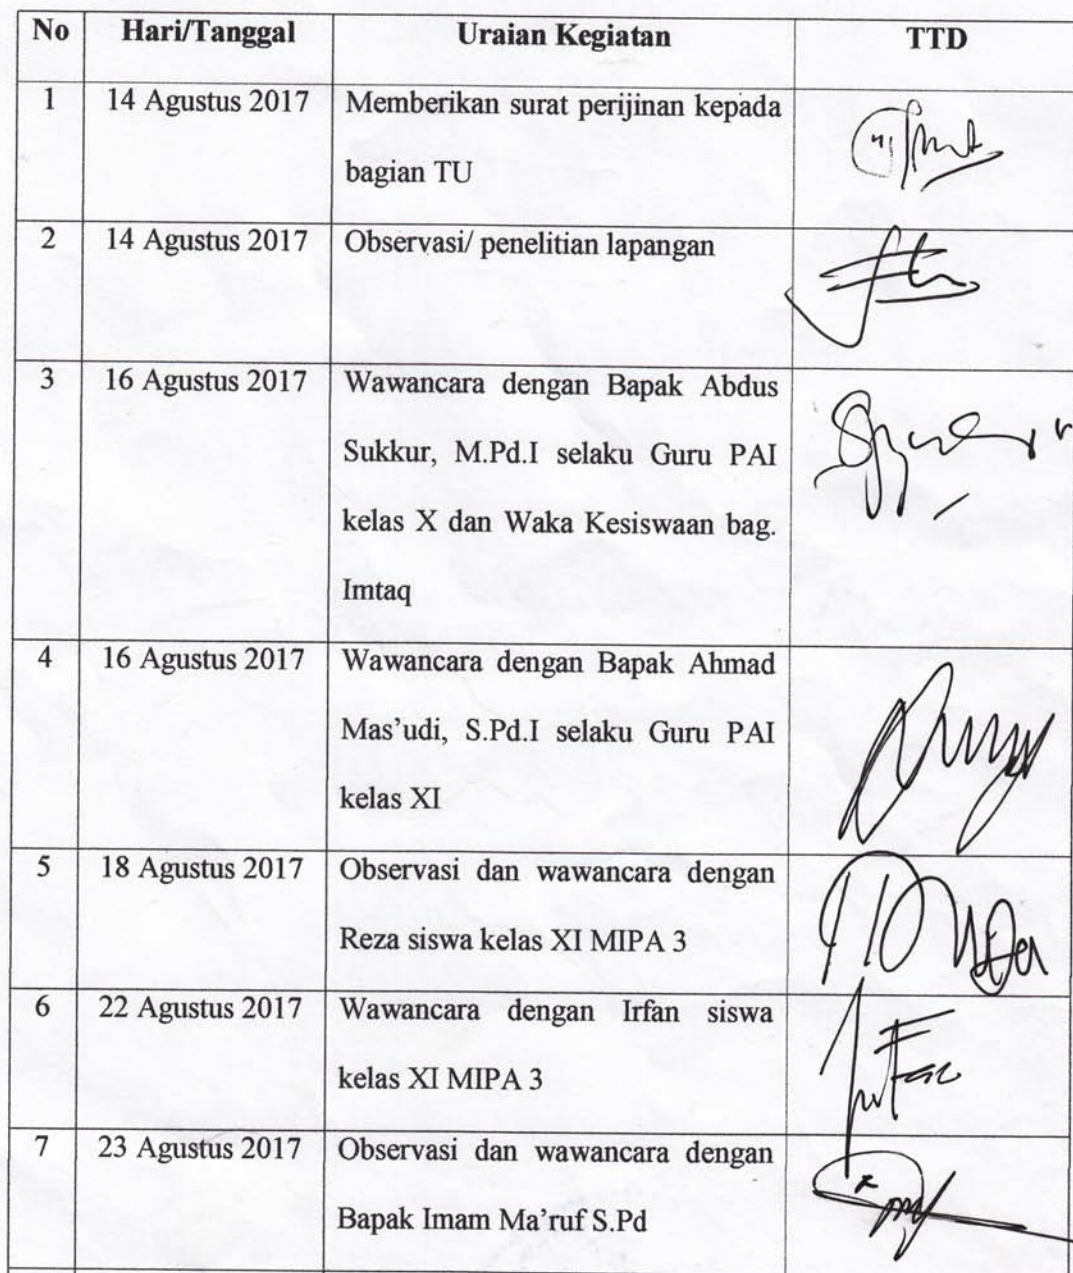 No Hari/Tanggal Uraian Kegiatan TTD
1 14 Agustus 2017 Memberikan surat perijinan kepada
bagian TU
2 14 Agustus 2017 Observasi/ penelitian lapangan
3 16 Agustus 2017 Wawancara dengan Bapak Abdus
Sukkur, M.Pd.I selaku Guru PAI
kelas X dan Waka Kesiswaan bag.
Imtaq
4 16 Agustus 2017 Wawancara dengan Bapak Ahmad
Mas'udi, S.Pd.I selaku Guru PAI
kelas XI
5 18 Agustus 2017 Observasi dan wawancara dengan
Reza siswa kelas XI MIPA 3
6 22 Agustus 2017 Wawancara dengan Irfan siswa
kelas XI MIPA 3
7 23 Agustus 2017 Observasi dan wawancara dengan
Bapak Imam Ma'ruf S.Pd